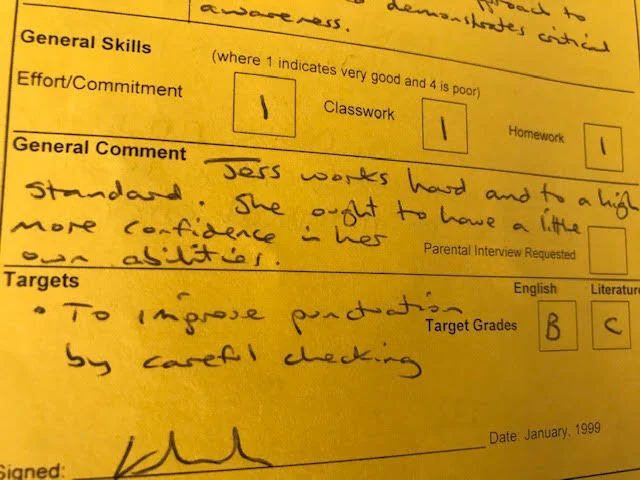 demonstrates critical
awareness.
General Skills
(where 1 indicates very good and 4 is poor)
Effort/Commitment 1 Classwork 1 Homework 1
General Comment Jess works hard and to a high
standard. She ought to have a little
more confidence in her
own abilities.
Parental Interview Requested
Targets
English Literature
• To improve punctuation
Target Grades B C
by careful checking
Date: January, 1999
Signed: